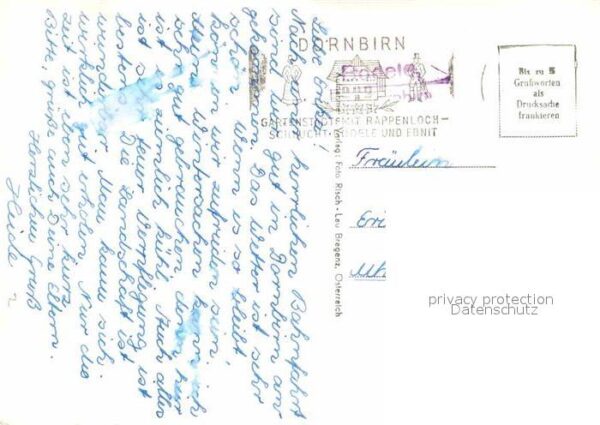 Liebe
Nach einer herrlichen Bahnfahrt
sind wir gut in Dornbirn an-
gekommen. Das Wetter ist sehr
schön. Wenn es so bleibt
können wir zufrieden sein.
Mein Wintersachen kann ich
sehr gut gebrauchen, denn hier
ist es ziemlich kühl. Auch alles
ist zur Verfügung.
Die Landschaft ist
wunderbar. Man kann sich
wirklich gut erholen. Nur die
Zeit ist eben sehr kurz.
Bitte, grüße auch Deine Eltern.
Herzlichen Gruß
Heide
DORNBIRN
GARTENSTADT MIT RAPPENLOCH-
SCHLUCHT, BÖDELE UND EBNIT
Bis zu 5
Grußworten
als
Drucksache
frankieren
Verlag: Foto Risch-Lau Bregenz, Österreich
Fräulein
privacy protection
Datenschutz